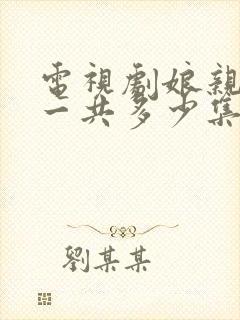 電視劇娘親
一共多少集
劉某某